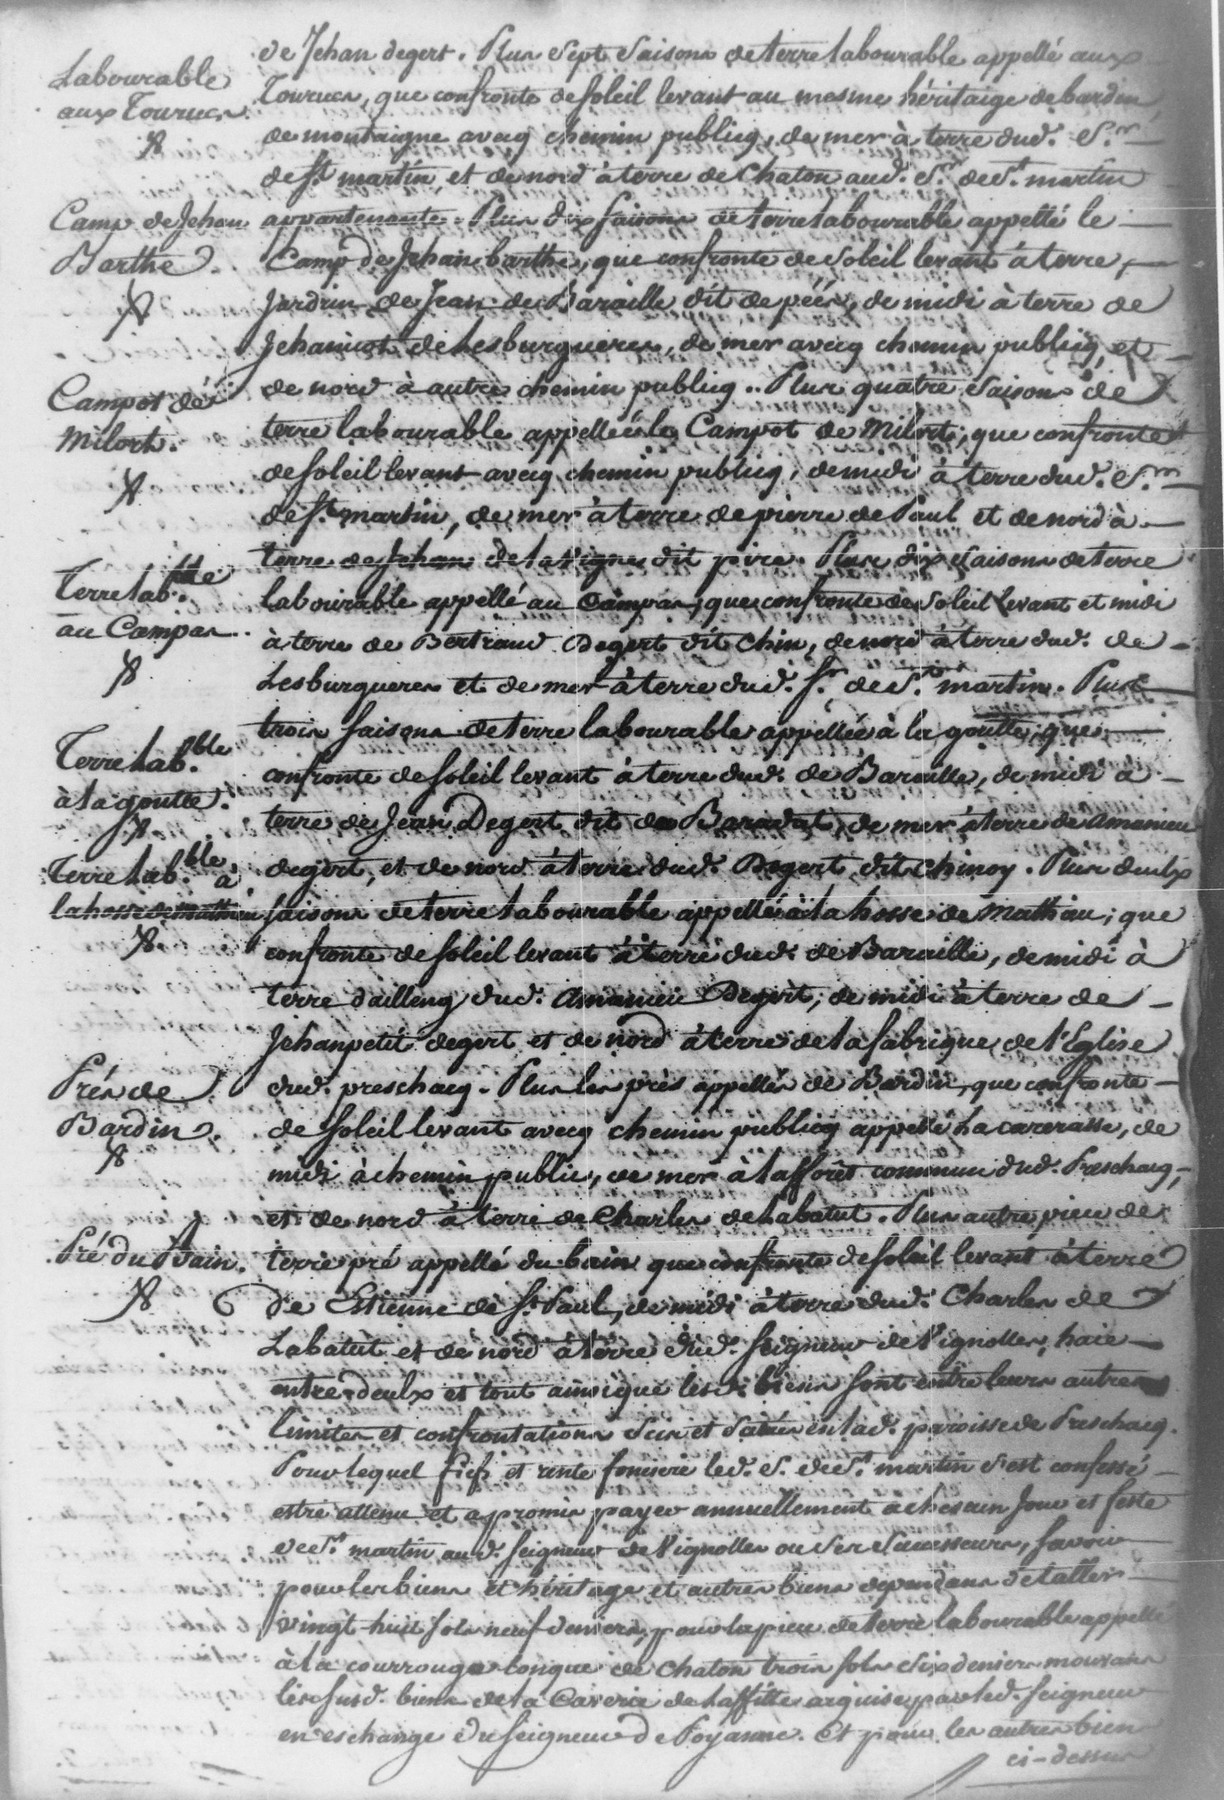 de Jehan degert. Plus Sept Saisons de terre labourable appellé aux
Labourable
aux Tourucs
Tourucs, que confronte de soleil levant au mesme héritaige de bardin
de montaigne avecq chemin publicq, de mer à terre dud. S.r
de S.t martin et de nord à terre de Chaton aud. S.r de S.t martin
Camp de Jehan
Barthe.
appartenante. Plus dix saisons de terre labourable appellé le
Camp de Jehan barthe, que confronte de Soleil levant à terre,
Jardin de Jean de Baraille dit de péés, de midi à terre de
Jehanicot de Lesburgueres, de mer avecq chemin publicq, et
de nord à autre chemin publicq.. Plus quatre Saisons de
Campot de
Milort.
terre labourable appellée le Campot de Milort, que confronte
de soleil levant avecq chemin publicq, de midi à terre dud. S.r
de S.t martin, de mer à terre de pierre de Paul et de nord à
terre de Jehan de la Vigne dit pire. Plus dix saisons de terre
Terre lab.ble
au Campas.
labourable appellé au Campas, que confronte de Soleil levant et midi
à terre de Bertrand Degert dit Chin, de nord à terre dud. de
Lesburgueres et de mer à terre dud. S.r de S.t martin. Plus
trois saisons de terre labourable appellée à la goutte, que
Terre lab.ble
à la goutte.
confronte de soleil levant à terre dud. de Baraille, de midi à
terre de Jean Degert dit de Baradat, de mer à terre de Amanieu
Terre lab.ble à
la hosse de Mathieu
degert, et de nord à terre dud. Degert dit Chinoy. Plus deulx
saisons de terre labourable appellée à la hosse de Mathiau; que
confronte de soleil levant à terre dud. de Baraille, de midi à
terre d'ailleng dud. Amanieu Degert, de midi à terre de
Jehanpetit degert et de nord à terre de la fabrique de l'Eglise
Prés de
Bardin.
dud. preschacq. Plus les prés appellés de Bardin, que confronte
de soleil levant avecq chemin publicq appellé La carerasse, de
midi à chemin public, de mer à la fforêt commun dud. Preschacq,
et de nord à terre de Charles de Labatut. Plus autre piece de
Pré du Bain.
terre pré appellé du bain que confronte de soleil levant à terre
de Estienne de S.t Paul, de midi à terre dud. Charles de
Labatut et de nord à terre dud. Seigneur de Vignolles, haie
entre deulx et tout ainsi que lesd. biens sont entre leurs autres
limites et confrontations Scis et Situés en lad. paroisse de Preschacq.
Pour lequel fief et rente fonciere led. S. de S.t martin s'est confessé
estre attenu et a promis payer annuellement à chescun Jour et feste
de S.t martin aud. Seigneur de Vignolles ou Ses Successeurs, savoir
pour les biens et héritage et autres biens dependans de Taller
vingt-huit sols neuf deniers, pour la piece de terre labourable appellé
à la courrouge longue de Chaton trois sols Six deniers mouvans
les susd. biens de la Caverie de Laffitte acquise par led. Seigneur
en eschange du Seigneur de Poyanne. Et pour les autres bien
ci-dessus